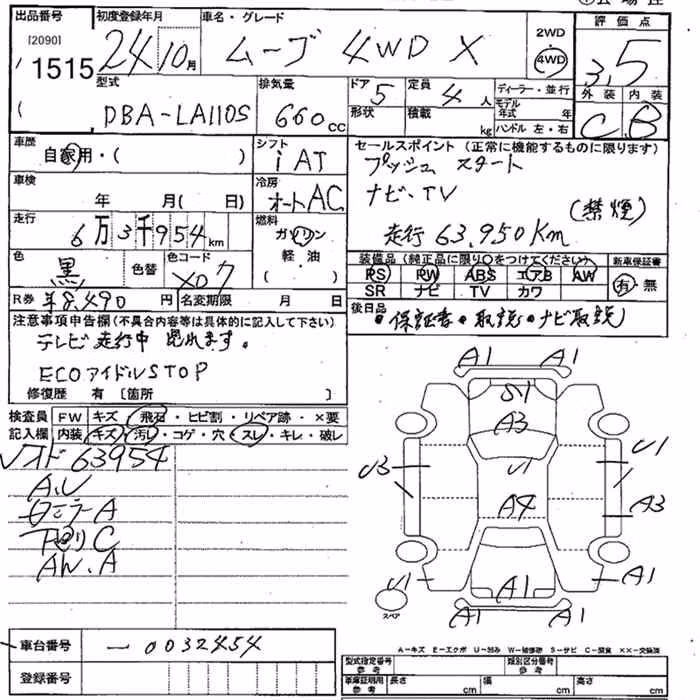 出品番号
[2090]
1515
初度登録年月
24 10月
車名・グレード
ムーブ 4WD X
2WD
4WD
評価点
3.5
外装 内装
C B
型式
DBA-LA110S
排気量
660cc
ドア 5
形状
定員 4人
積載 kg
ディーラー・並行
モデル年式 年
ハンドル 左・右
車歴
自家用・( )
シフト
iAT
車検
年 月( 日)
冷房
オートAC
走行
6万3千954km
燃料
ガソリン
軽油
( )
色
黒
色替
色コード
X07
R券 ¥8,490円
名変期限 月 日
セールスポイント (正常に機能するものに限ります)
プッシュスタート
ナビ・TV
(禁煙)
走行 63,950Km
装備品 (純正品に限り○をつけてください)
新車保証書
PS PW ABS エアB AW
有・無
SR ナビ TV カワ
後日品
・保証書・取説・ナビ取説
注意事項申告欄(不具合内容等は具体的に記入して下さい)
テレビ走行中見れます。
ECOアイドルSTOP
修復歴 有 [箇所 ]
検査員 FW キズ・飛石・ヒビ割・リペア跡・×要
記入欄 内装 キズ・汚レ・コゲ・穴・スレ・キレ・破レ
63954
A.U
A
C
AW.A
A1 A1
S1
A3
U3 U1 U1
A4 A3
U1 A1 A1
A1 A1
スペア
A-キズ E-エクボ U-凹み W-補修跡 S-サビ C-腐食 XX-交換済
車台番号 -0032454
登録番号
型式指定番号
参考
類別区分番号
参考
車庫証明用
参考
長さ cm 幅 cm 高さ cm